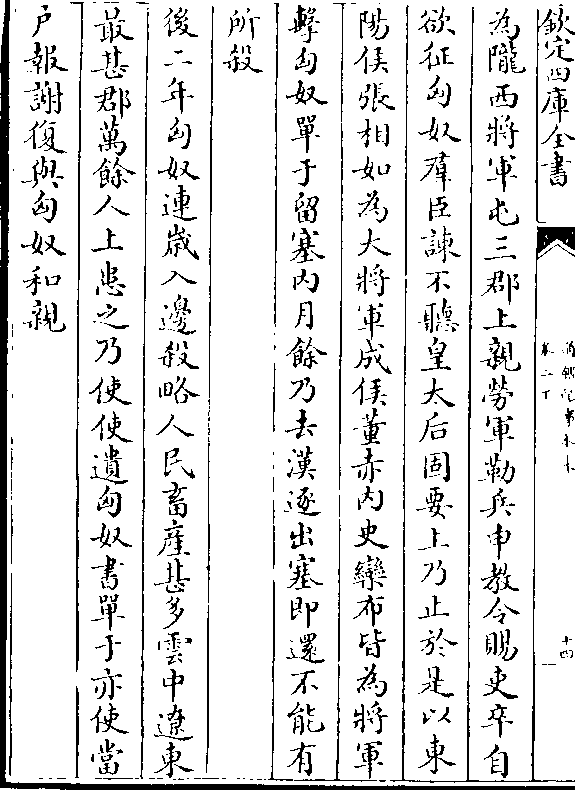 欽定四庫全書
通鑑紀事本末
卷二下
十四
為隴西將軍屯三郡上親勞軍勒兵申教令賜吏卒自
欲征匈奴羣臣諫不聽皇太后固要上乃止於是以東
陽侯張相如為大將軍成侯董赤内史欒布皆為將軍
擊匈奴單于留塞内月餘乃去漢逐出塞即還不能有
所殺
後二年匈奴連歳入邊殺略人民畜産甚多雲中遼東
最甚郡萬餘人上患之乃使使遺匈奴書單于亦使當
户報謝復與匈奴和親